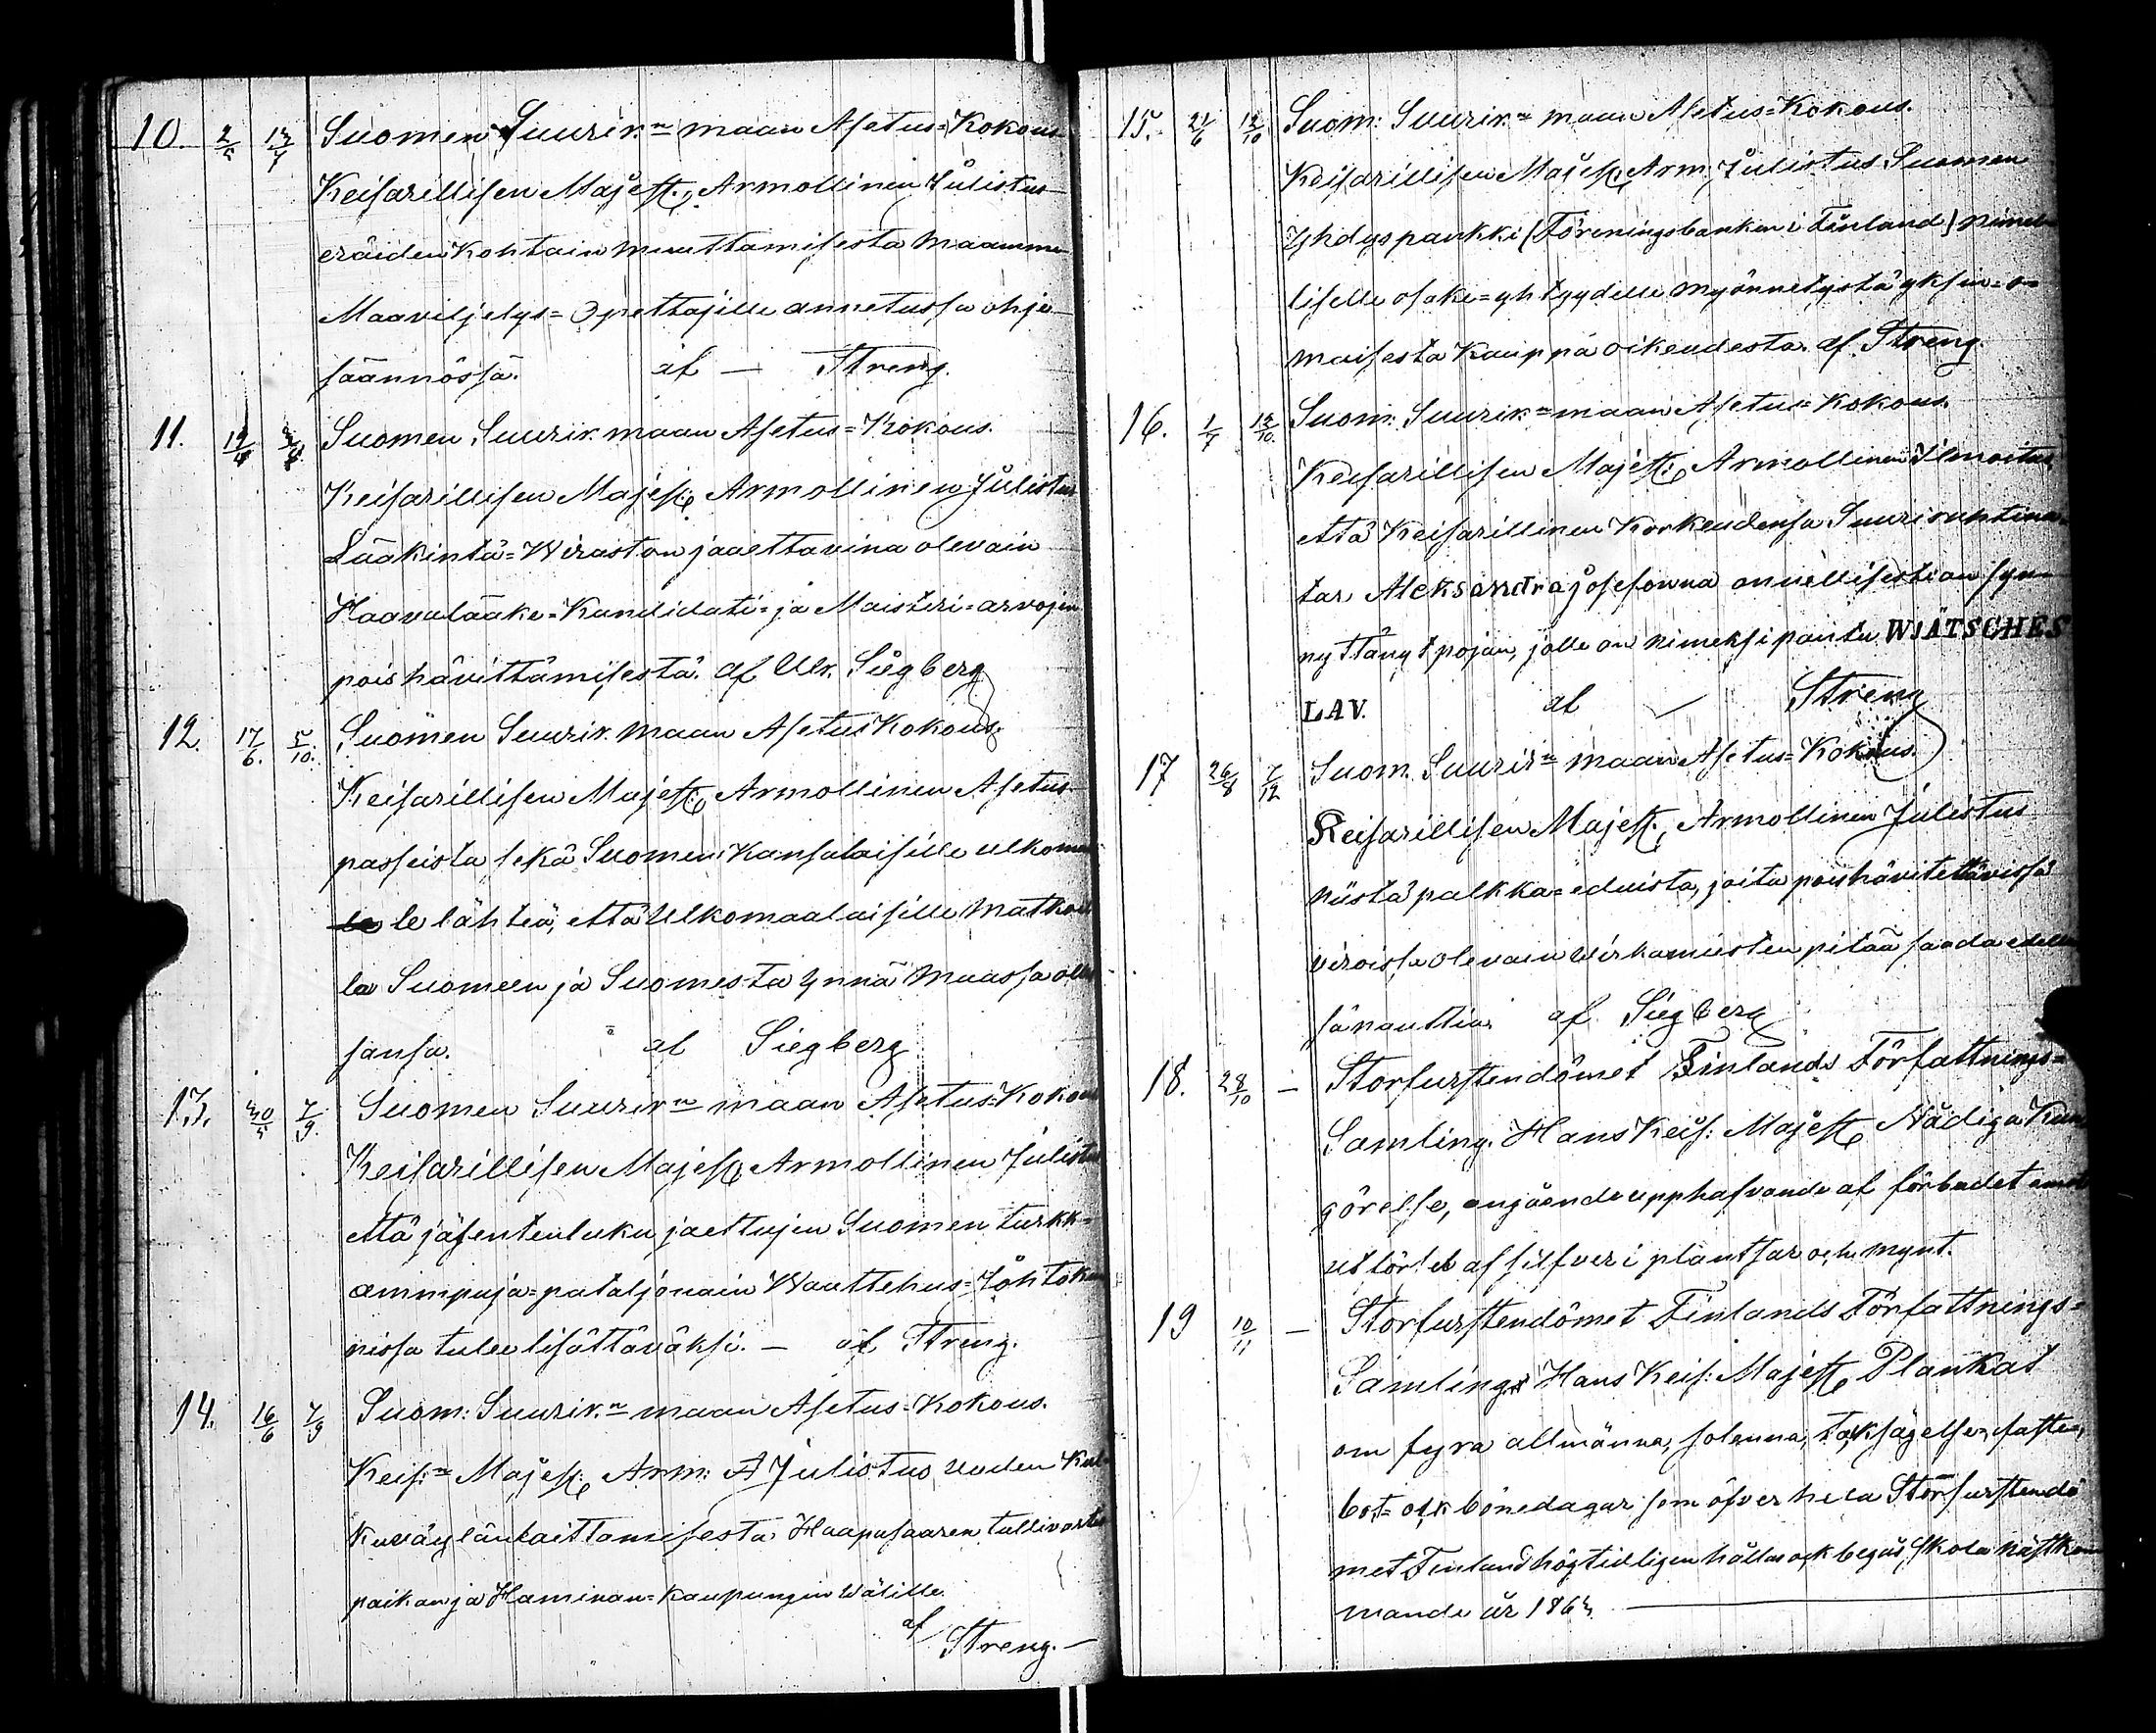 10. 2/5 13/7 Suomen Suurir:n maan Asetus=Kokous
Keisarillisen Majest:, Armollinen Julistus
eräiden kohtain muuttamisesta maamme
Maaviljelys=Opettajille annetussa ohje
säännössä. af — Streng.
11. Suomen Suurir. maan Asetus=Kokous.
Keisarillisen Majest: Armollinen Julistus
Lääkintä=Wiraston jaaettavina olevain
Haavalääke=Kandidati= ja Maisteri=arvojen
poishävittämisestä. af Ulr. Siegberg
12. 17/6. 5/10. Suomen Suurir. maan Asetus Kokous.
Keisarillisen Majest: Armollinen Asetus
passeista sekä Suomen Kansalaisille ulkomaal
le lähteä, että Ulkomaalaisille matkus
la Suomeen ja Suomesta ynnä maassa olles
sansa. af Siegberg
13. 30/5 7/9. Suomen Suurir:n maan Asetus=Kokous
Keisarillisen Majest: Armollinen Julistus
että jäsentenluku jaettujen Suomen tark=
ammpuja=pataljonain Waattehus=Johtokun
nissa tulee lisättäväksi. — af Streng.
14. 16/6 7/9 Suom: Suurir.n maan Asetus=Kokous.
Keis:n Majest: Arm: Julistus uuden Kul
kuväylän laittamisesta Haapasaaren tullivartia
paikan ja Haminan=kaupungin wälille.
af Streng.—
15. 21/6 13/10 Suom: Suurir:n maan Asetus=Kokous.
Keisarillisen Majest: Arm: Julistus Suomen
Yhdyspankki (Föreningsbanken i Finland) nimel
liselle osake=yhtyydelle myönnetystä yksin=o=
maisesta kauppa oikeudesta. af Streng.
16. 1/7 13/10. Suom: Suurir:n maan Asetus=Kokous.
Keisarillisen Majest: Armollinen Ilmoitus,
että Keisarillinen Korkeudensa Suuriruhtina
tar Aleksandra Josefowna onnellisestion syn
nyttänyt pojan, jolle on nimeksi pantu WJÄTSCHES
LAV. af — Streng
17 26/8 7/12 Suom. Suurir:n maan Asetus=Kokous.
Keisarillisen Majest:, Armollinen Julistus
niistä palkka=eduista, joita poishävitettävissä
viroissa olevain wirkamiesten pitää saada edelleen
sänauttia. af Siegberg
18. 28/10 — Storfurstendömet Finlands Författnings=
Samling. Hans Keis: Majest: Nådiga Kun
görelse, angående upphäfvande af förbudet emot
utförsel af silfver i plantsar och mynt.
19 10/11 — Storfurstendömet Finlands Författnings=
Samling Hans Keis: Majest: Plankat
om fyra allmänna, solenna, taksägelse=, faste=,
bot= ock bönedagar som öfver hela Storfurstendö
met Finland högtidligen hållas ock begås skola nästkom
mande år 1863.